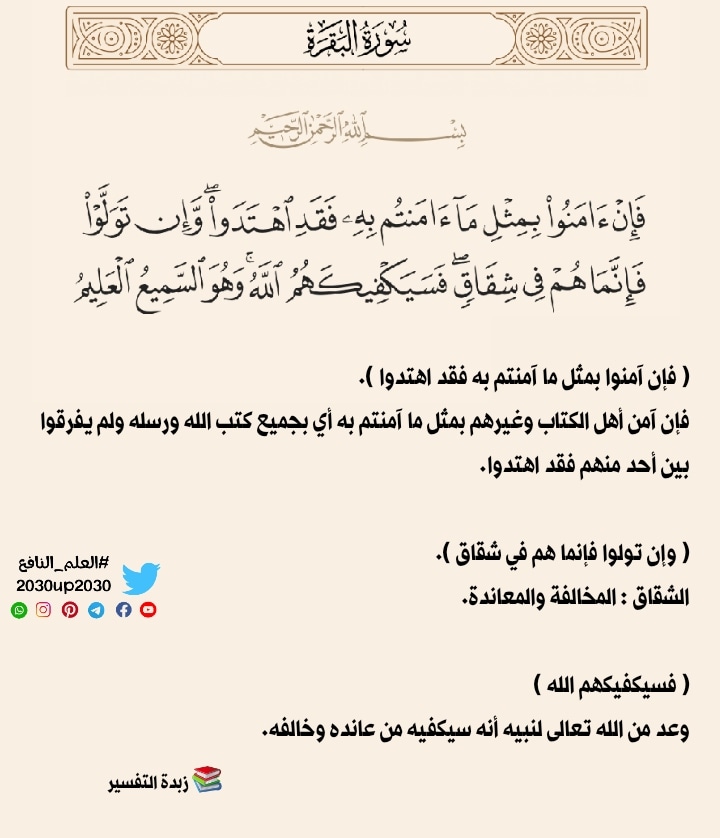 سُورَةُ البَقَرَةِ
بِسْمِ اللَّهِ الرَّحْمَٰنِ الرَّحِيمِ
فَإِنْ ءَامَنُوا۟ بِمِثْلِ مَآ ءَامَنتُم بِهِۦ فَقَدِ ٱهْتَدَوا۟ ۖ وَّإِن تَوَلَّوْا۟
فَإِنَّمَا هُمْ فِى شِقَاقٍ ۖ فَسَيَكْفِيكَهُمُ ٱللَّهُ ۚ وَهُوَ ٱلسَّمِيعُ ٱلْعَلِيمُ
( فإن آمنوا بمثل ما آمنتم به فقد اهتدوا ).
فإن آمن أهل الكتاب وغيرهم بمثل ما آمنتم به أي بجميع كتب الله ورسله ولم يفرقوا
بين أحد منهم فقد اهتدوا.
( وإن تولوا فإنما هم في شقاق ).
الشقاق : المخالفة والمعاندة.
#العلم_النافع
2030up2030
( فسيكفيكهم الله )
وعد من الله تعالى لنبيه أنه سيكفيه من عانده وخالفه.
زبدة التفسير